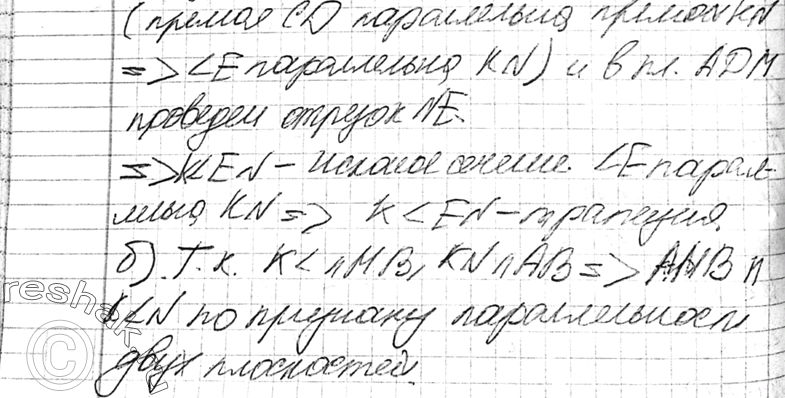 (прямая CD параллельна прямой KN
=> LE параллельна KN) и в пл. ADM
проведем отрезок NE.
=> KLEN - искомое сечение. LE парал-
лельна KN => KLEN - трапеция.
б). Т.к. KL || MB, KN || AB => AMB ||
KLN по признаку параллельности
двух плоскостей.
reshak.ru